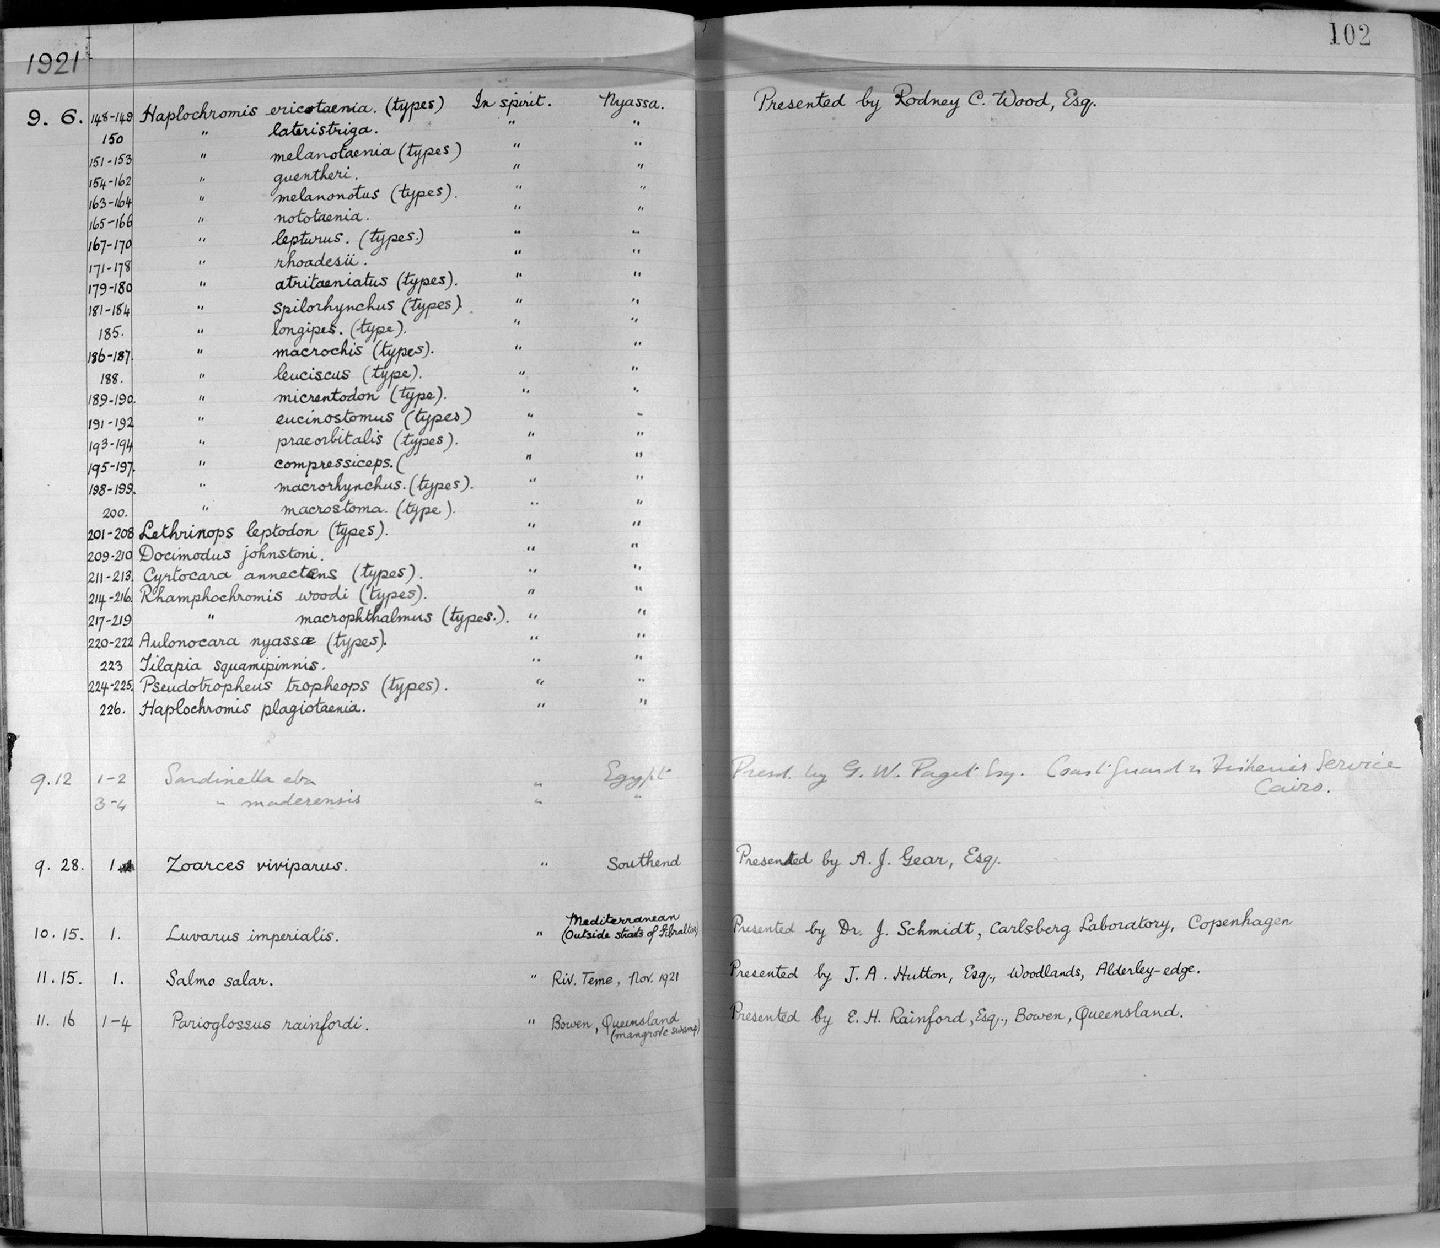 102
1921
9. 6. 148-149 Haplochromis ericotaenia. (types) In spirit. Nyassa. Presented by Rodney C. Wood, Esq.
150 " lateristriga. " "
151-153 " melanotaenia (types) " "
154-162 " guentheri. " "
163-164 " melanonotus (types). " "
165-166 " nototaenia. " "
167-170 " lepturus. (types.) " "
171-178 " rhoadesii. " "
179-180 " atritaeniatus (types). " "
181-184 " spilorhynchus (types). " "
185. " longipes. (type). " "
186-187. " macrochis (types). " "
188. " leuciscus (type). " "
189-190. " micrentodon (type). " "
191-192 " eucinostomus (types) " "
193-194 " praeorbitalis (types). " "
195-197. " compressiceps. ( " "
198-199. " macrorhynchus. (types). " "
200. " macrostoma. (type). " "
201-208 Lethrinops leptodon (types). " "
209-210 Docimodus johnstoni. " "
211-213. Cyrtocara annectens (types). " "
214-216. Rhamphochromis woodi (types). " "
217-219 " macrophthalmus (types.). " "
220-222 Aulonocara nyassæ (types). " "
223 Tilapia squamipinnis. " "
224-225. Pseudotropheus tropheops (types). " "
226. Haplochromis plagiotaenia. " "
9.12 1-2 Sardinella eba " Egypt Presd. by G. W. Paget Esq. Coast Guard & Fisheries Service
Cairo.
3-4 " maderensis " "
9. 28. 1. Zoarces viviparus. " Southend Presented by A. J. Gear, Esq.
10. 15. 1. Luvarus imperialis. " Mediterranean
(Outside straits of Gibraltar) Presented by Dr. J. Schmidt, Carlsberg Laboratory, Copenhagen
11. 15. 1. Salmo salar. " Riv. Teme, Nov. 1921 Presented by J. A. Hutton, Esq., Woodlands, Alderley-edge.
11. 16 1-4 Parioglossus rainfordi. " Bowen, Queensland
(mangrove swamp) Presented by E. H. Rainford, Esq., Bowen, Queensland.